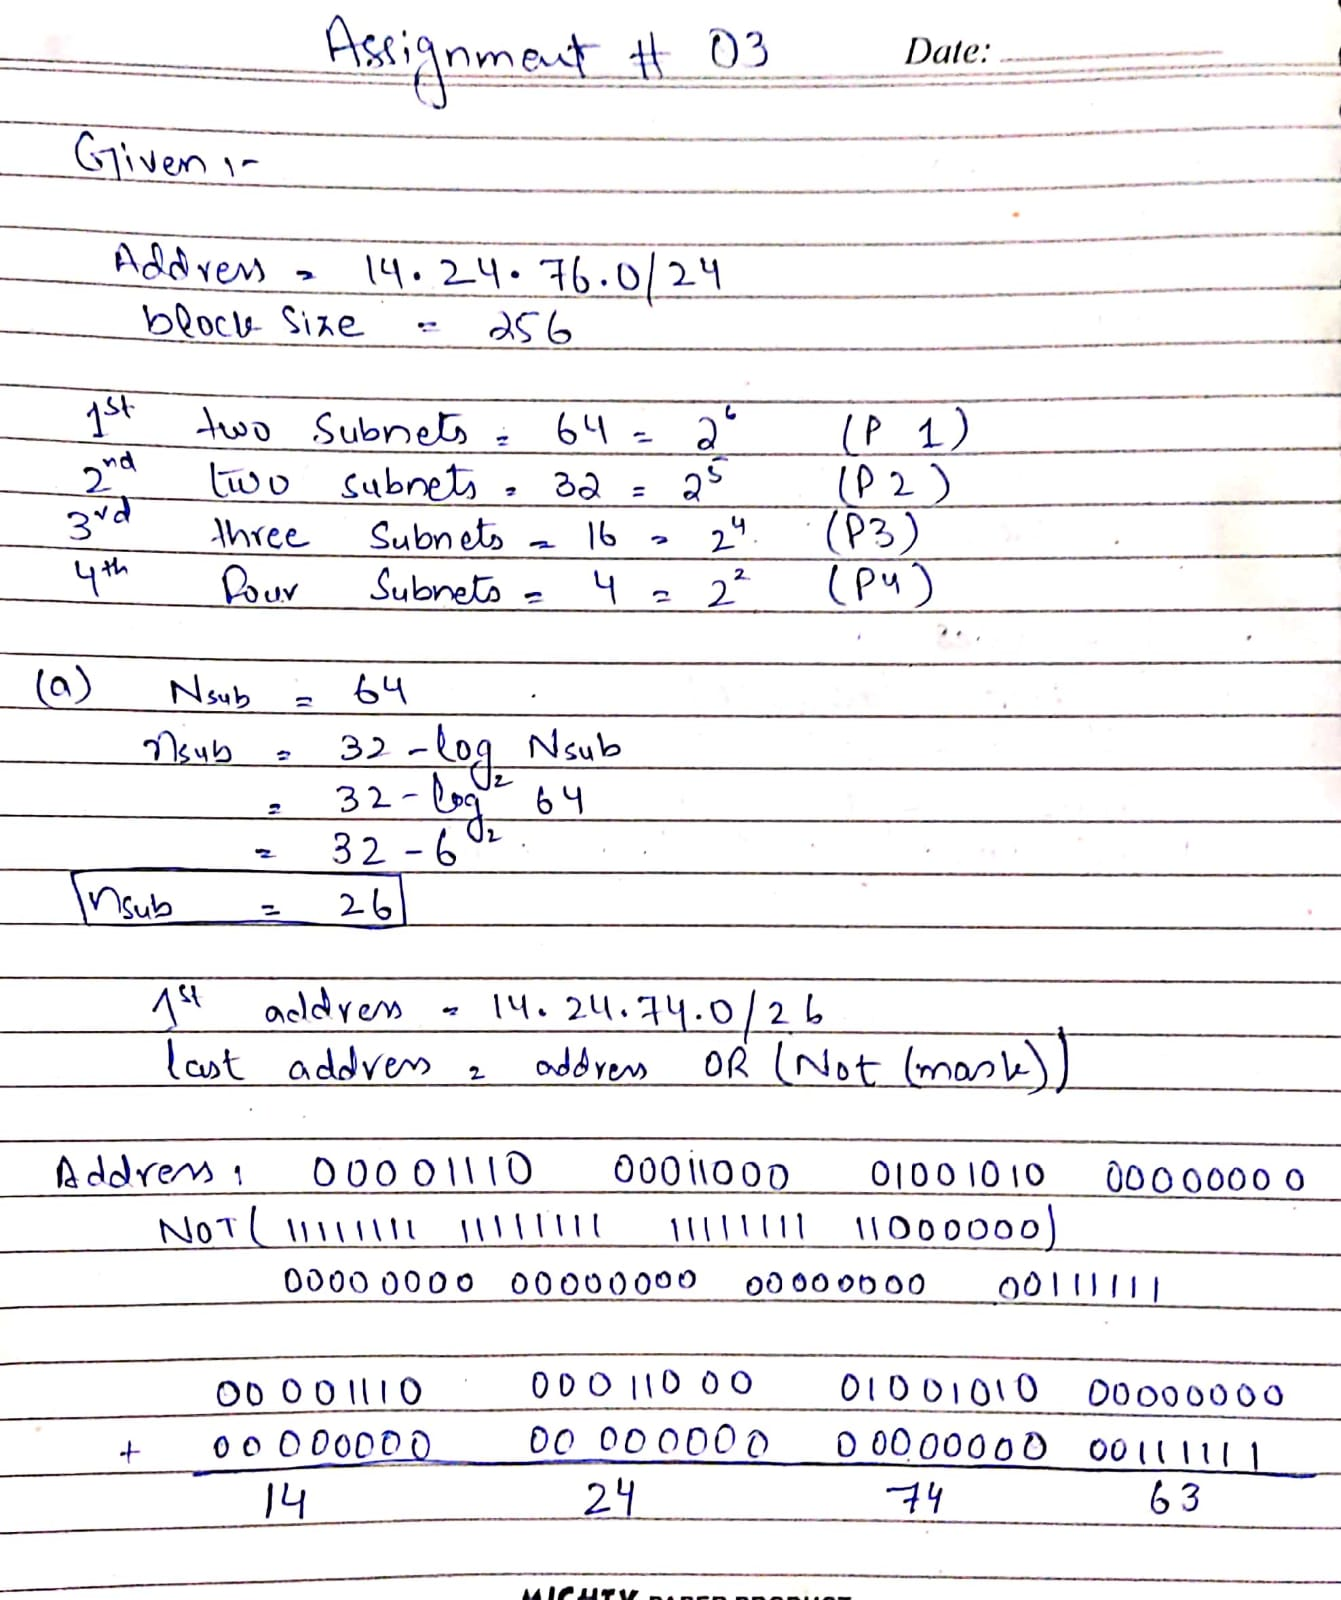 Assignment # 03 Date:
Given :-
Address = 14.24.76.0/24
block Size = 256
1st two Subnets = 64 = 2⁶ (P 1)
2nd two subnets = 32 = 2⁵ (P 2)
3rd three Subnets = 16 = 2⁴ (P3)
4th Four Subnets = 4 = 2² (P4)
(a) Nsub = 64
nsub = 32 - log₂ Nsub
= 32 - log₂ 64
= 32 - 6
nsub = 26
1st address = 14.24.74.0/26
last address = address OR (Not (mask))
Address : 00001110 00011000 01001010 00000000
NOT( 11111111 11111111 11111111 11000000)
00000000 00000000 00000000 00111111
00001110 00011000 01001010 00000000
+ 00000000 00000000 00000000 00111111
14 24 74 63